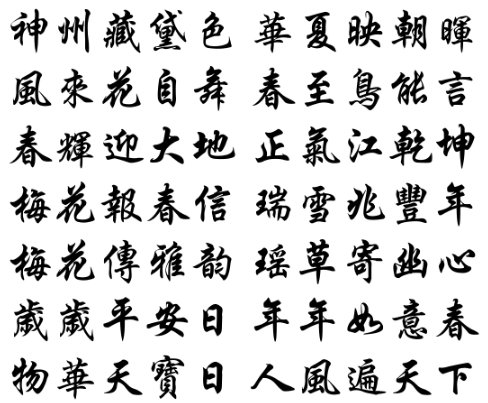 神州藏黛色 華夏映朝暉
風來花自舞 春至鳥能言
春輝迎大地 正氣江乾坤
梅花報春信 瑞雪兆豐年
梅花傳雅韵 瑶草寄幽心
歲歲平安日 年年如意春
物華天寶日 人風遍天下